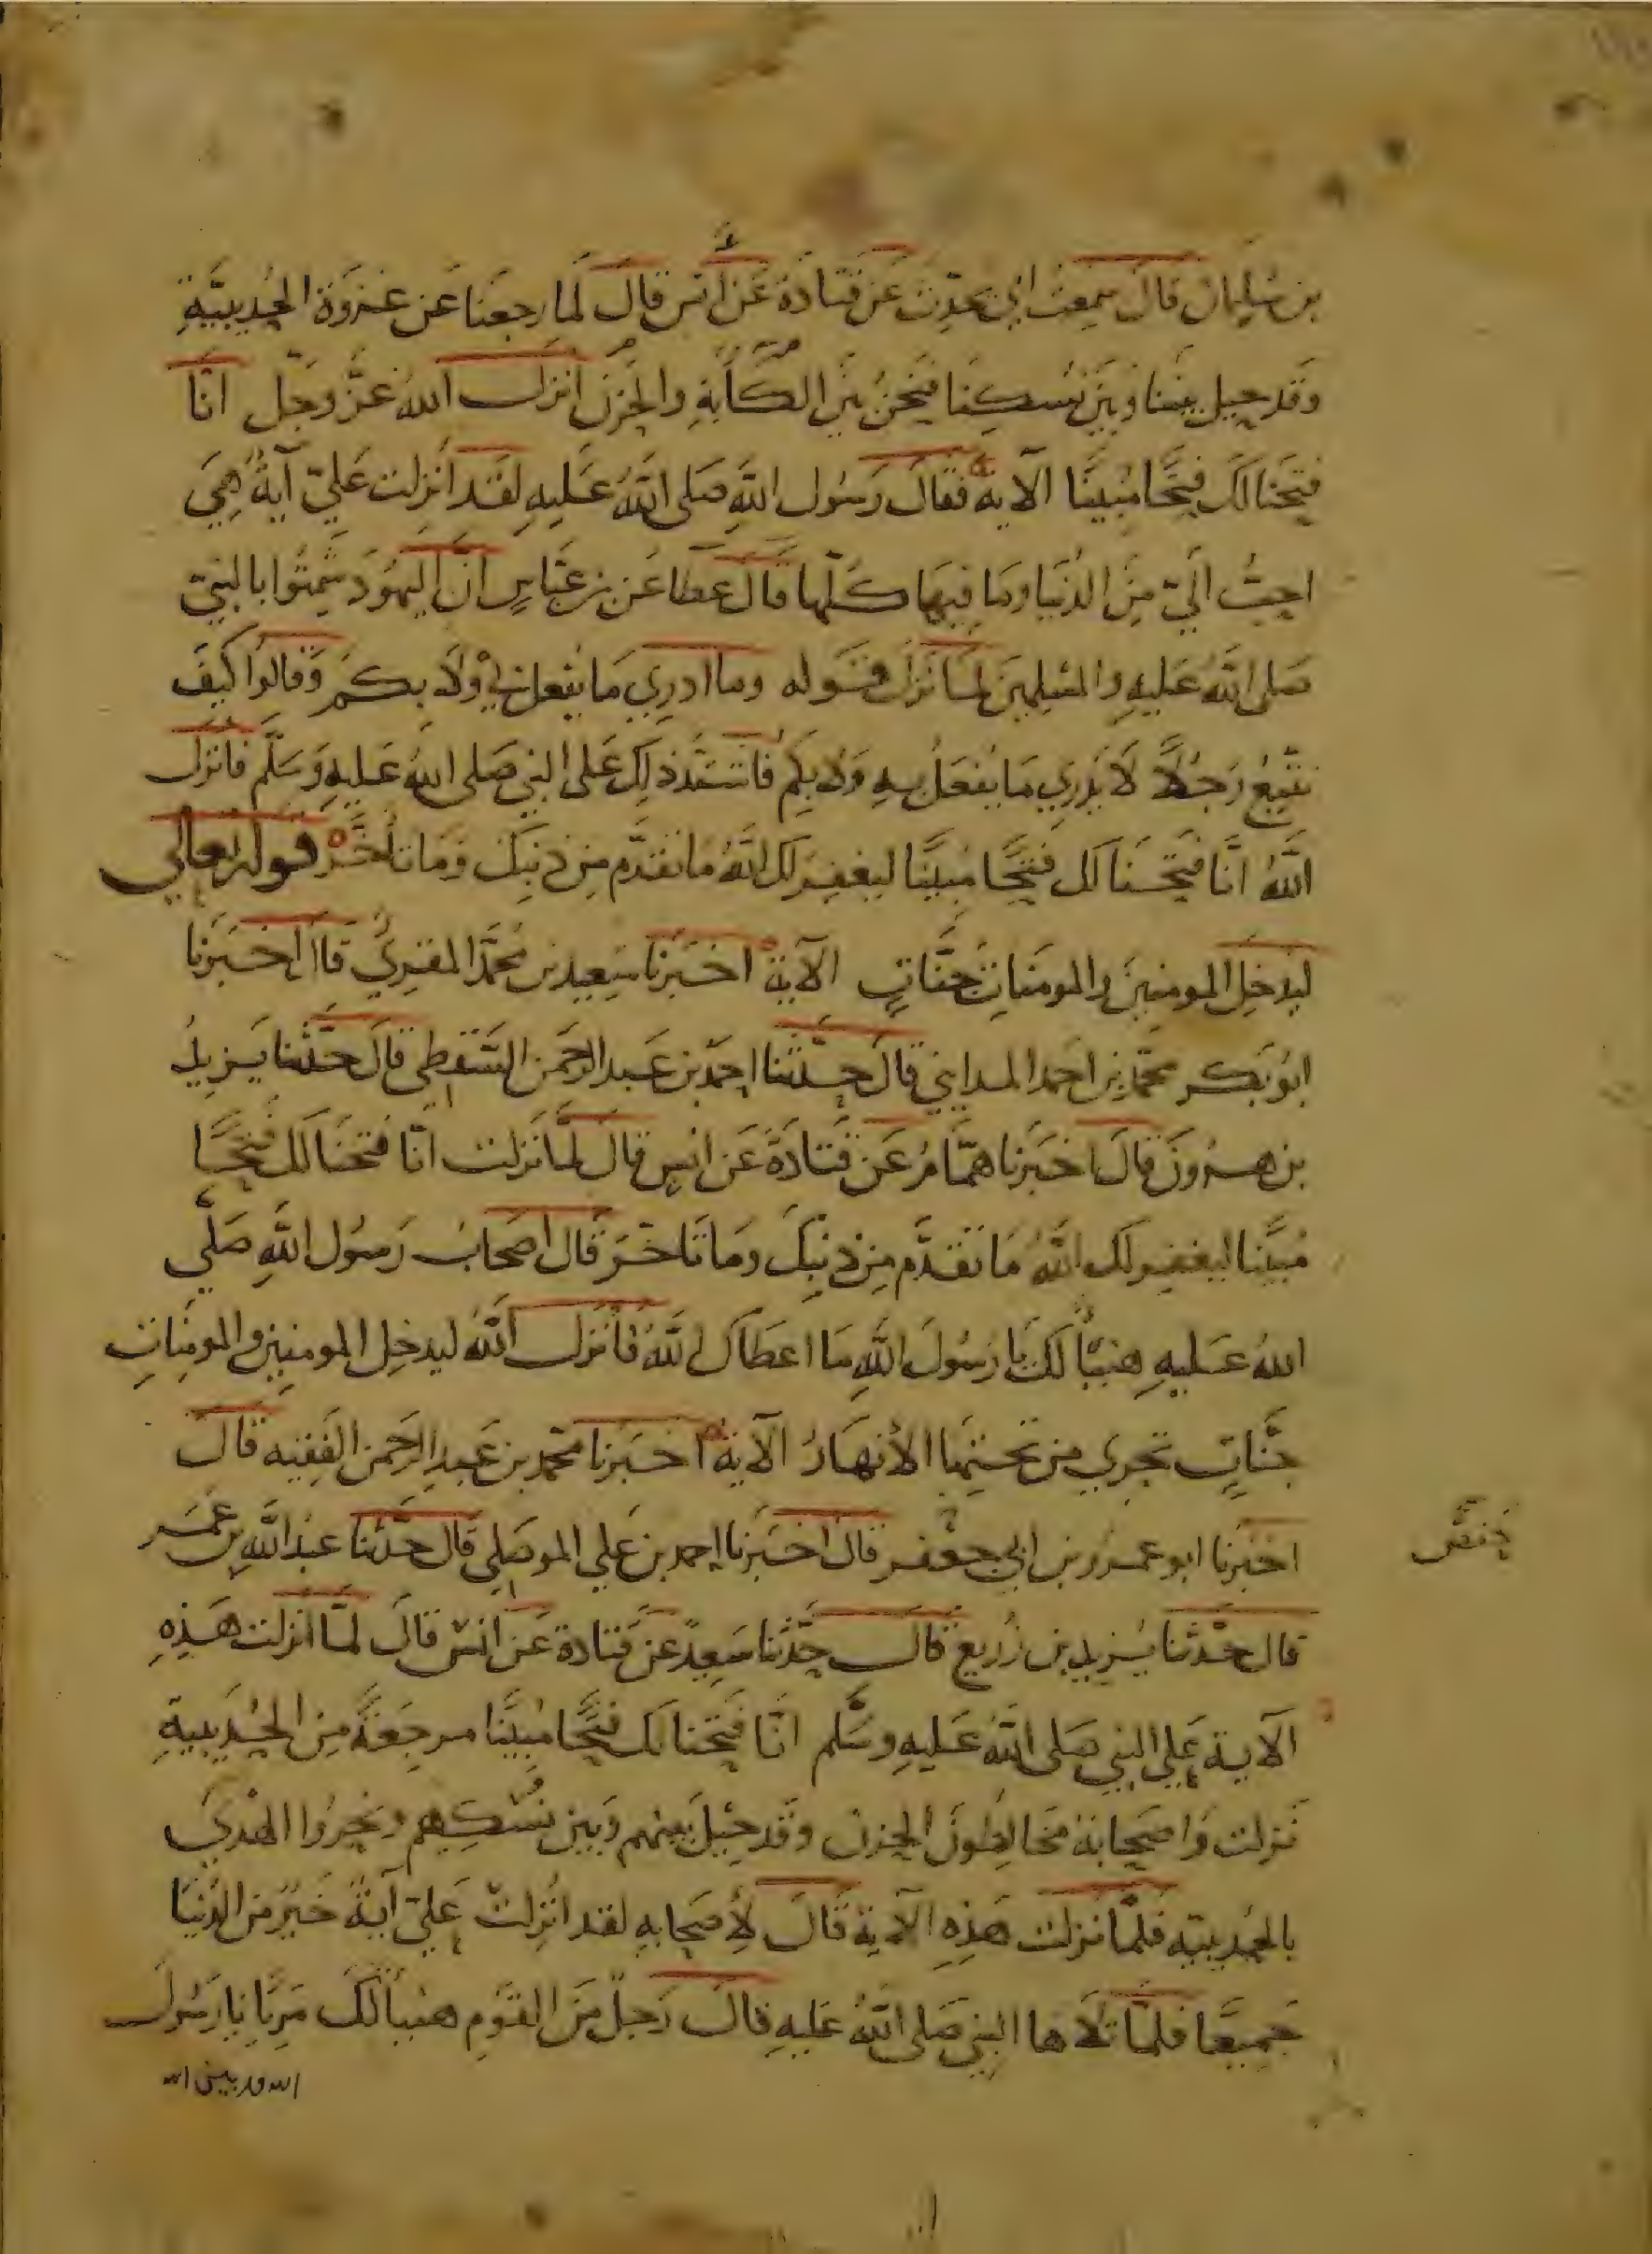 بن سُليمان قال سَمِعتُ ابي يحَدِّث عَن قَتَادَة عَن انَس قال لَما رجعنَا عَن غزوَة الحُديبيَّةِ
وَقَد حِيل بيننا وَبَيْنَ نُسُكِنَا فنَحنُ بَيْنَ الكَآبةِ والحُزنِ انزل اللهُ عَزَّ وَجَل انَّا
فتَحنَا لَكَ فتحًا مُبينًا الآية فقَالَ رَسُول اللهِ صَلى اللهُ عَليهِ لقَد انزلت عَليّ آيةٌ هِيَ
احَبُّ اليّ مِنَ الدُنيَا وما فِيهَا كلّها قَال عَطا عَن بن عَبَّاسٍ انّ اليهُودَ شَمِتُوا بالنبيّ
صَلى اللهُ عَليهِ والمسْلِمينَ لمَا نزَلَ قَوله وما ادرِي مَا يُفعل بِي وَلَا بِكمْ وَقالوا كيفَ
نتبِعُ رَجُلًا لَا يَدرِي مَا يُفعَلُ بهِ وَلا بِكم فاشتَدّ ذلِكَ عَلى النبِي صَلى اللهُ عَليهِ وَسَلّم فانزل
اللهُ انَّا فتَحنَا لك فتحًا مُبينًا ليغفِرَ لكَ اللهُ مَا تقدّم مِن ذنبِكَ وَمَا تأخَّرَ قوله تعالي
ليدخِلَ المومنِينَ والمومنَاتِ جنَّاتٍ الآية اخبَرنا سَعِيد بن مُحمَّد المقرِيُ قال اخبَرنا
ابُو بَكر محمَّد بن احمد المدايني قَال حدّثنا احمَد بن عَبد الرحمَن السَّقطِي قالَ حدَّثنا يَزِيدُ
بن هـرُونَ قالَ اخبَرنا همَّامٌ عَن قَتَادَةَ عَن انسٍ قال لمَّا نَزلت انّا فتحنَا لك فتحًا
مُبينًا ليغفِر لكَ اللهُ مَا تقدَّم مِن ذنبِكَ ومَا تَاخّرَ قَال اصحَابُ رَسُول اللهِ صَلّي
اللهُ عَليهِ هنيئًا لكَ يَا رَسُولَ اللهِ مَا اعطَاكَ اللهُ فانزل اللهُ ليدخِل المومِنين والمومِنَاتِ
جنّاتٍ تجري من تحتِهَا الأنهَارُ الآية اخبَرنا محمّد بن عَبدِ الرحمن الفَقِيه قَالَ
اخبَرنا ابو عمرو بن ابي جعفر قال اخبَرنا احمد بن عَلي الموصَلِي قال حدَّثنا عبدُ اللهِ بن عُمَر
حفص
قال حدّثنا يَزيد بن زُريع قالَ حدّثنا سَعِيدٌ عن قتادة عَن انسٍ قالَ لمّا انزلت هَذِهِ
الآية عَلى النبِي صَلى اللهُ عَليهِ وسَلّم انّا فتَحنا لكَ فتحًا مُبينًا مرجعَهُ مِنَ الحُدَيبيةِ
نَزلت وَاصحَابهُ مخَالِطونَ الحزن وقَد حِيلَ بينهم وَبين نُسُكِهِم ونحرُوا الهديَ
بالحُديبيّه فلمّا نزلت هَذِهِ الآية قَالَ لِأصحَابهِ لقد انُزِلَت عَليّ آيةٌ خَيرٌ من الدُّنيَا
جَمِيعًا فلمّا تلَاها النبِي صَلى اللهُ عَليهِ قالَ رَجلٌ مِنَ القَومِ هنيئًا لكَ مَرِيًا يا رَسُول
الله قد بين الله